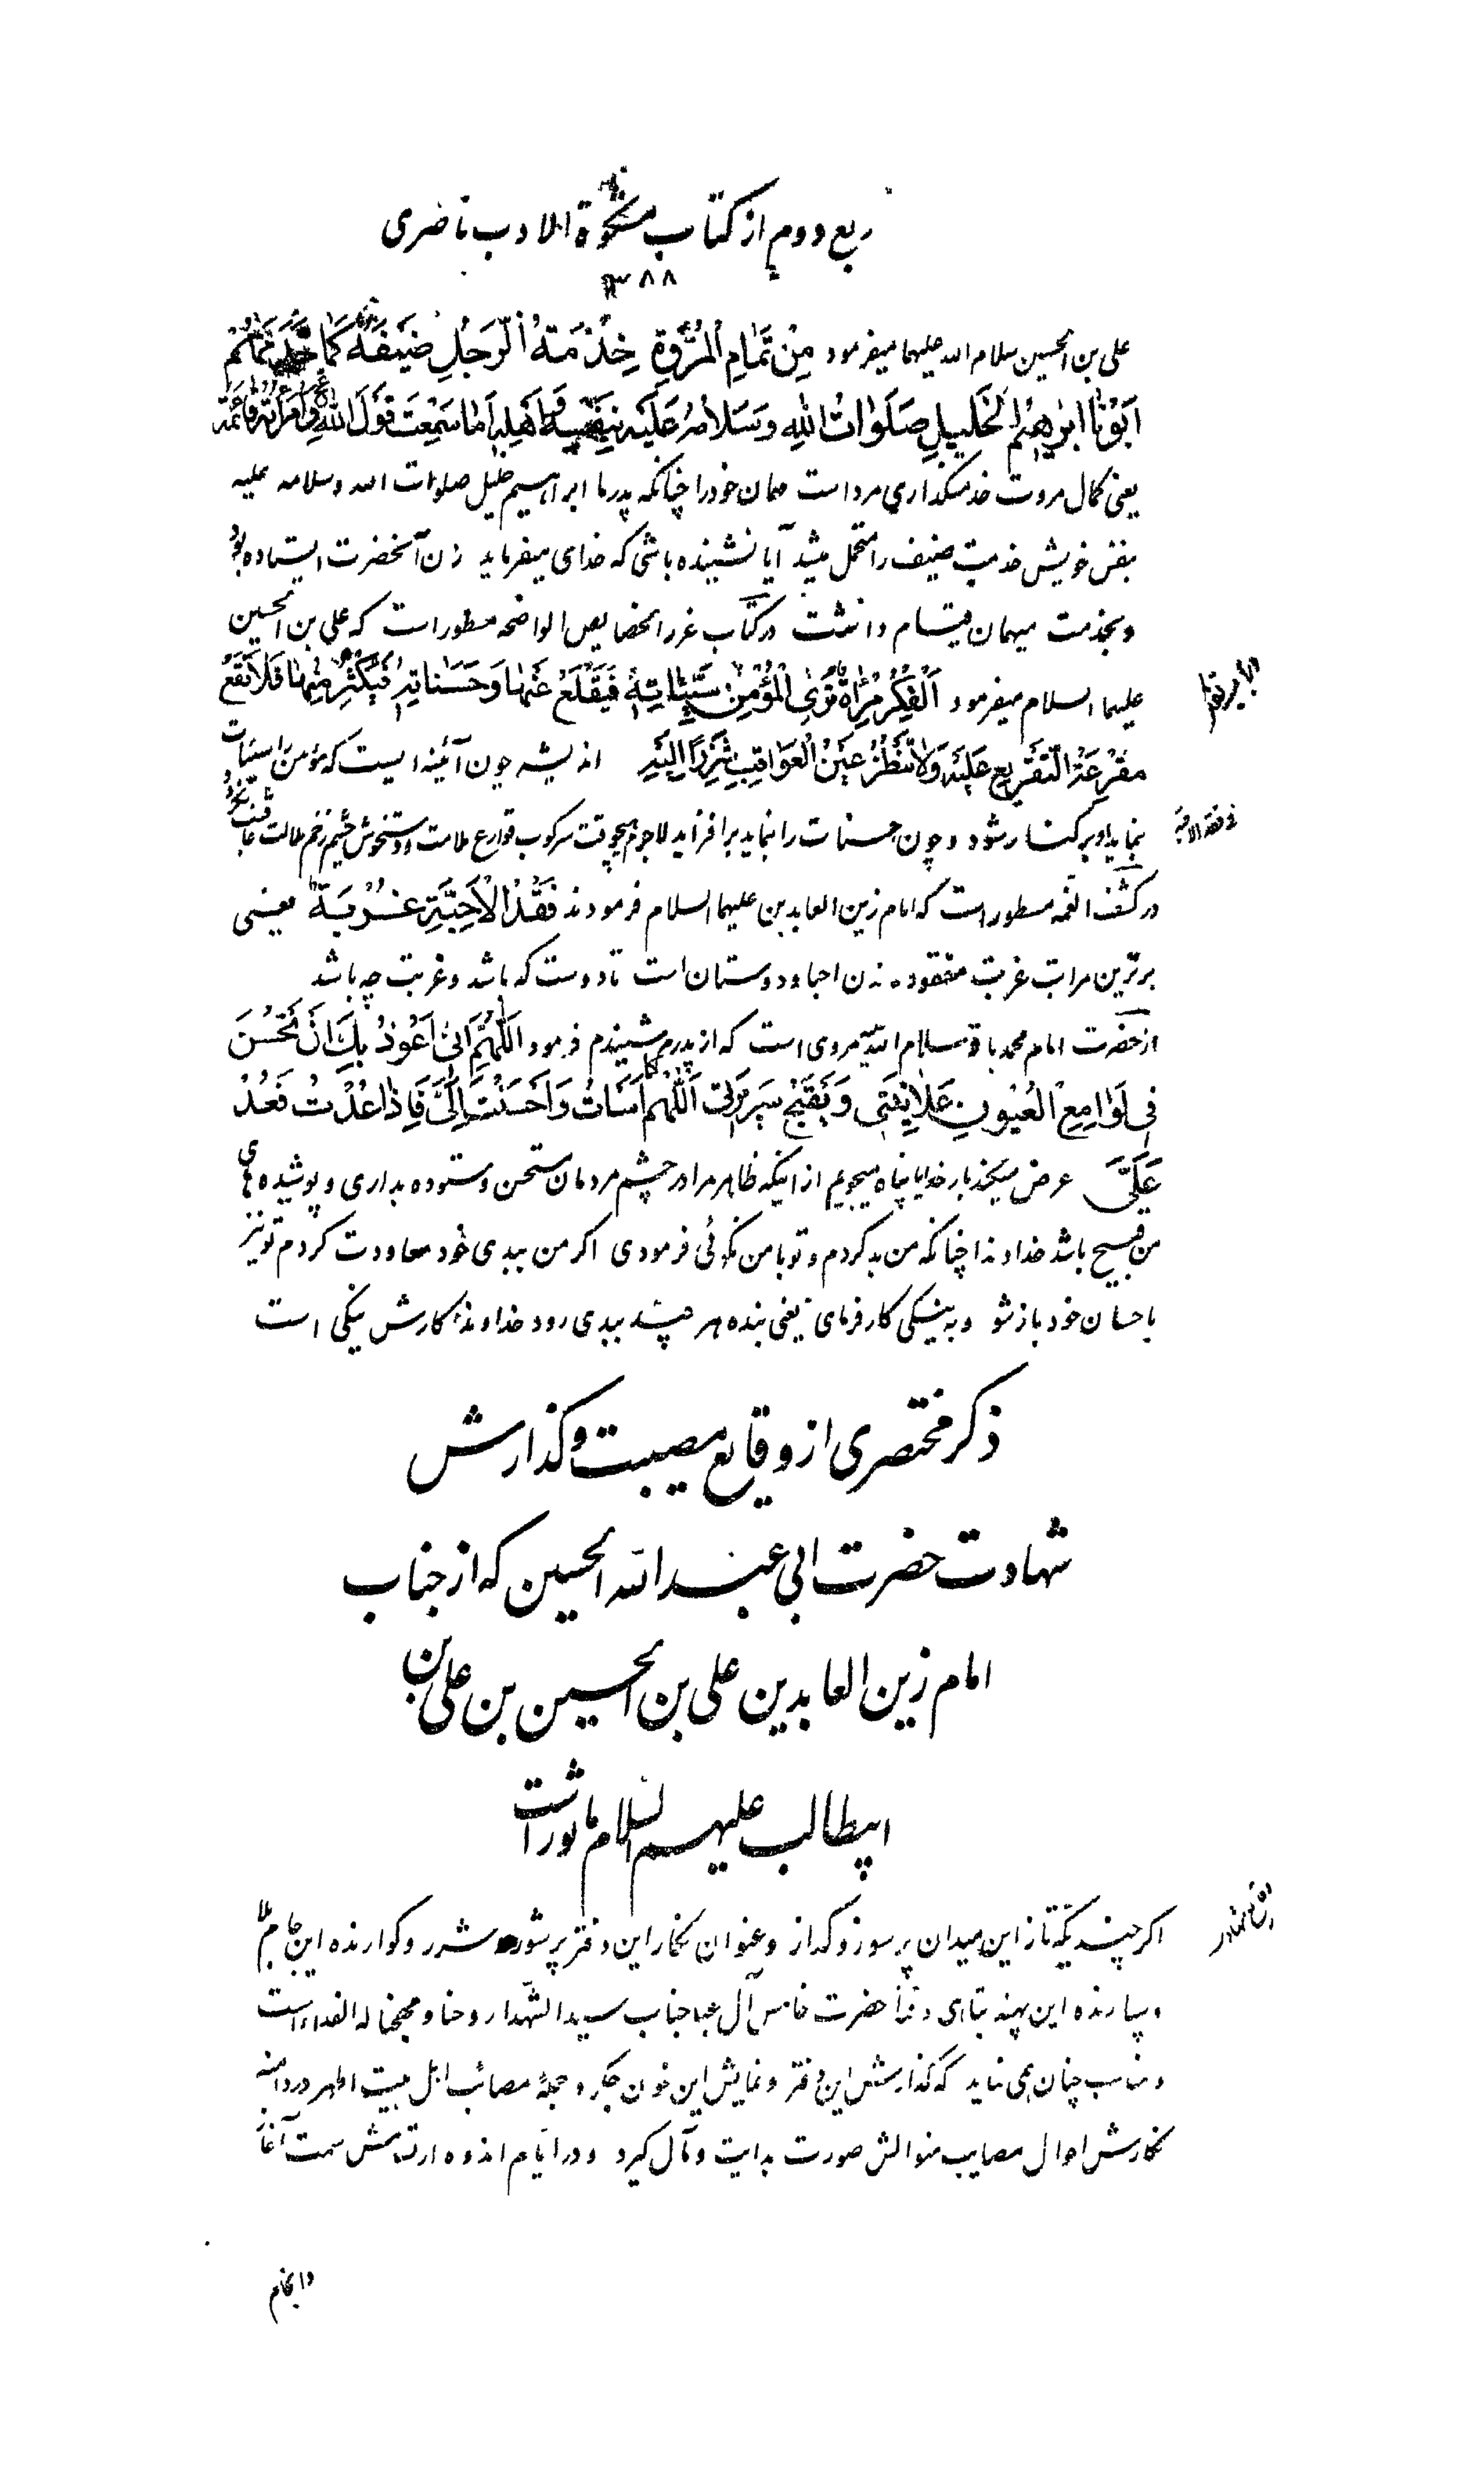 ربع دوم از کتاب مشکوة الادب ناصری
۳۸۸
علی بن الحسین سلام الله علیهما میفرمود مِنْ تَمَامِ الْمُرُوَّةِ خِذْمَةُ الرَّجُلِ ضَیْفَهُ کَمَا خَدَمَهُمْ
اَبُونَا اِبْرٰهِیمُ الْخَلِیلُ صَلَوَاتُ اللهِ وَسَلَامُهُ عَلَیْهِ بِنَفْسِهِ وَاَهْلِهِ اَمَا سَمِعْتَ قَوْلَ اللهِ وَامْرَاَتُهُ قَائِمَةٌ
یعنی کمال مروت خدمتگذاری مرد است مهمان خود را چنانکه پدر ما ابراهیم خلیل صلوات الله و سلامه علیه
بنفس خویش خدمت ضیف را متحمل میشد آیا نشینده باشی که خدای میفرماید زن آنحضرت ایستاده بود
و بخدمت میهمان قیام داشت در کتاب غرر الخصایص الواضحه مسطور است که علی بن الحسین
علیهما السلام میفرمود اَلْفِکْرُ مِرْاٰةٌ تُرِی الْمُؤْمِنَ سَیِّئَاتِهِ فَیَقْلَعُ عَنْهَا وَحَسَنَاتِهِ فَیُکْثِرُ مِنْهَا فَلَا تَقَعُ
مِقْرَعَةُ التَّقْرِیعِ عَلَیْهِ وَلَا تَنْظُرُ عَیْنُ الْعَوَاقِبِ شَزْرًا اِلَیْهِ اندیشه چون آئینه ایست که مؤمن را سیئات
بنماید او برکنار شود و چون حسنات را بنماید برافزاید لاجرم هیچوقت سرکوب قوارع ملامت و دستخوش چشم زخم ملالت عاقبت نگردد
در کشف الغمه مسطور است که امام زین العابدین علیهما السلام فرمودند فَقْدُ الْاَحِبَّةِ غُرْبَةٌ یعنی
برترین مراتب غربت مفقود شدن احبا و دوستان است تا دوست که باشد و غربت چه باشد
از حضرت امام محمد باقر سلام الله علیه مروی است که از پدرم شنیدم فرمود اَللّٰهُمَّ اِنِّی اَعُوذُ بِکَ اَنْ تُحَسِّنَ
فِی لَوَامِعِ الْعُیُونِ عَلَانِیَتِی وَتُقَبِّحَ سَرِیرَتِی اَللّٰهُمَّ کَمَا اَسَاْتُ وَاَحْسَنْتَ اِلَیَّ فَاِذَا عُدْتُ فَعُدْ
عَلَیَّ عرض میکند بار خدایا پناه میجویم از اینکه ظاهر مرا در چشم مردمان مستحسن و ستوده بداری و پوشیده های
من قبیح باشد خداوندا چنانکه من بد کردم و تو با من نکوئی فرمودی اکر من ببدی خود معاودت کردم تو نیز
باحسان خود باز شو و به نیکی کار فرمای یعنی بنده هر چند ببدی رود خداوند کارش نیکی است
ذکر مختصری از وقایع مصیبت و کذارش
شهادت حضرت ابی عبد الله الحسین که از جناب
امام زین العابدین علی بن الحسین بن علی بن
ابیطالب علیهم السلام ماثور است
اکر چند یکه تاز این میدان پر سوز و کداز و عنوان نکار این دفتر پر شور و شرر و کوارنده این جام بلا
و سپارنده این پهنه حضرت خامس آل عبا جناب سید الشهدا روحنا و مهجنا له الفداء است
و مناسب چنان می نماید که کذارش این دفتر و نمایش این خون جکر و جملهٔ مصائب اهل بیت اطهر در دامنه
نکارش احوال مصایب منوالش صورت بدایت و مآل کیرد و در ایام اندوه ارتسامش سمت آغاز
و انجام